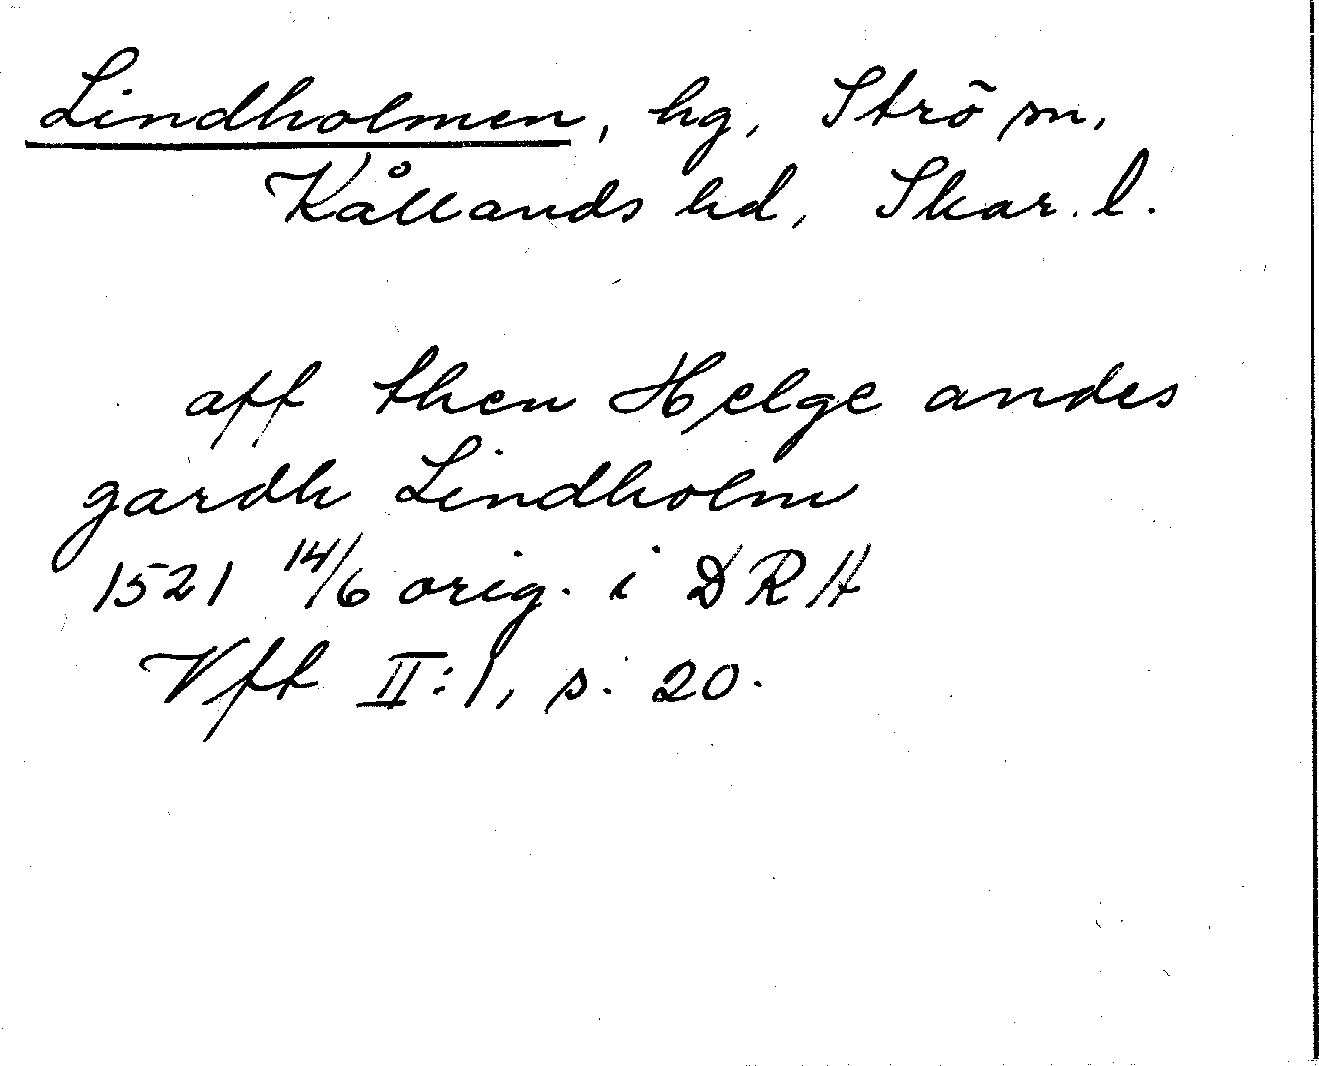 Lindholmen, hg, Strö sn,
Kållands hd, Skar. l.
aff then Helge andes
gardh Lindholm
1521 14/6 orig. i DRA
Vft II:1, s. 20.